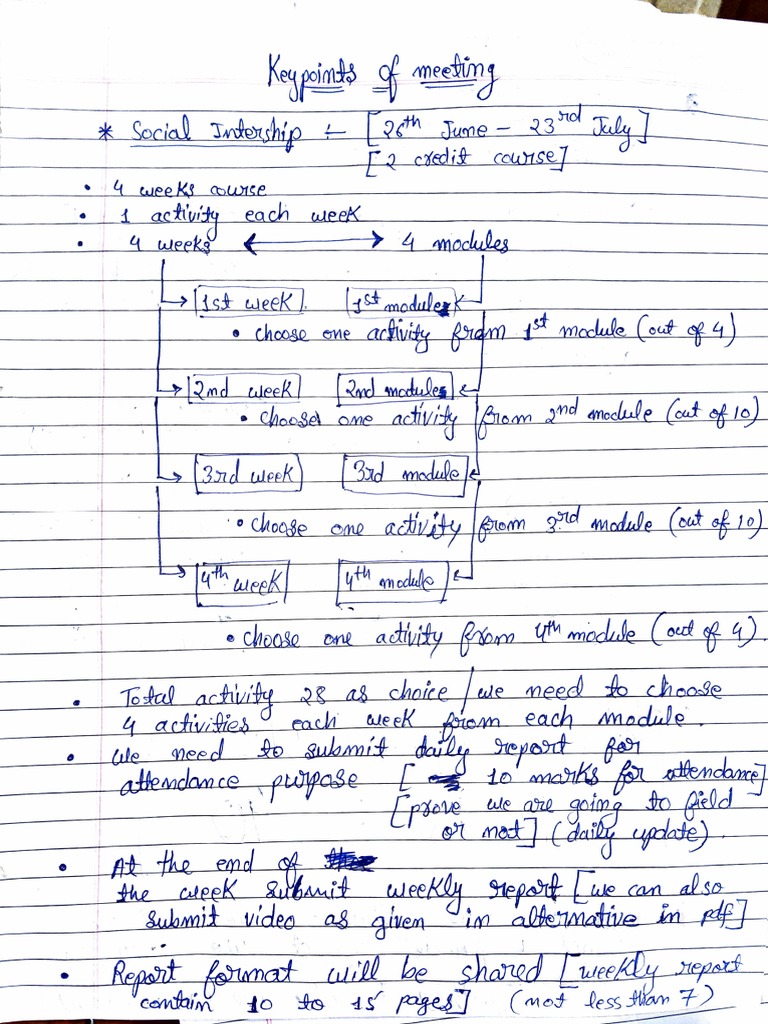 Keypoints of meeting
* Social Intership :- [26th June - 23rd July]
[2 credit course]
• 4 weeks course
• 1 activity each week
• 4 weeks ⟷ 4 modules
1st week 1st module
• choose one activity from 1st module (out of 4)
2nd week 2nd module
• choose one activity from 2nd module (out of 10)
3rd week 3rd module
• choose one activity from 3rd module (out of 10)
4th week 4th module
• choose one activity from 4th module (out of 4).
• Total activity 28 as choice / we need to choose
4 activities each week from each module.
• we need to submit daily report for
attendance purpose [ 10 marks for attendance]
[prove we are going to field
or not] (daily update).
• At the end of
the week submit weekly report [we can also
submit video as given in alternative in pdf]
• Report format will be shared [weekly report
contain 10 to 15 pages] (not less than 7)